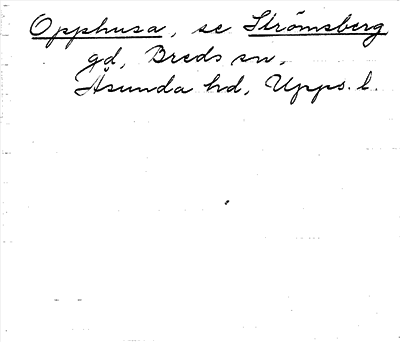 Opphusa, se Strömsberg
gd, Breds sn,
Åsunda hd, Upps. l.